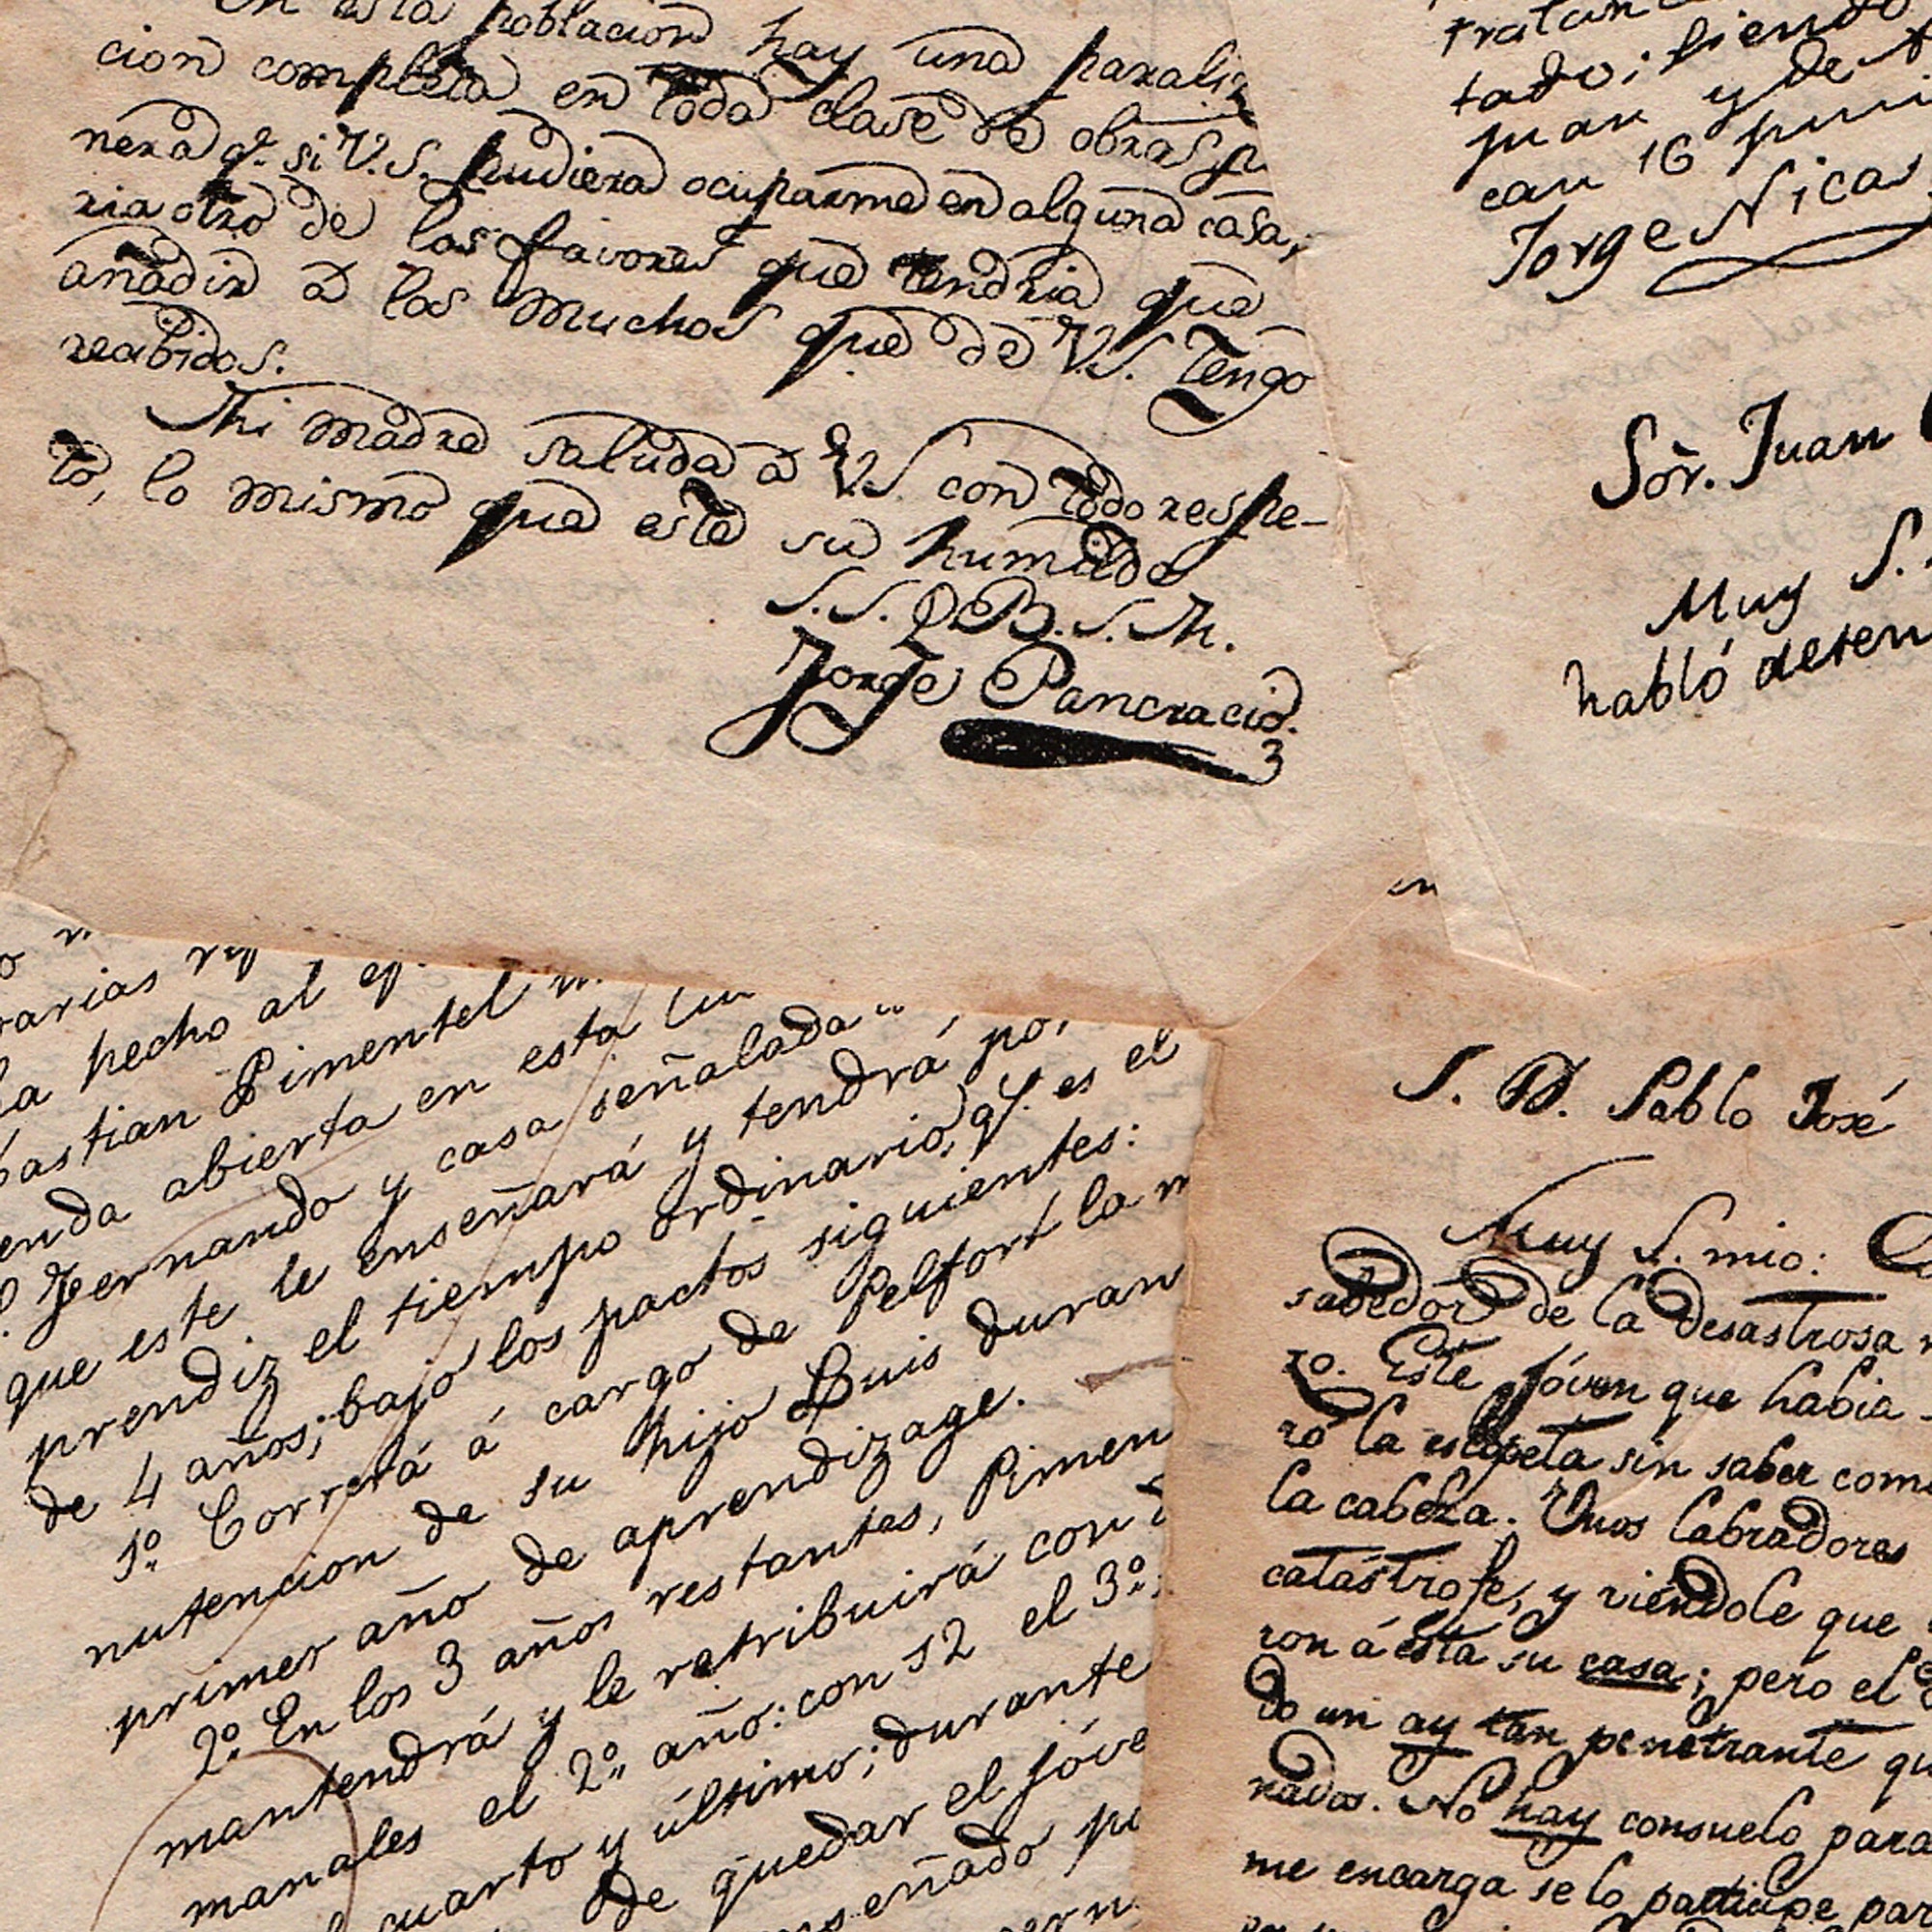 En esta poblacion hay una paraliza
cion completa en toda clase de obras,
nera qe. si V.S. pudiera ocuparme en alguna casa,
ria otro de los favores que tendria que
añadir á los muchos que de V.S. tengo
recibidos.
Mi madre saluda á V.S. con todo respe-
to, lo mismo que este su humilde
S. S. Q. B. S. M.
Jorge Pancracio.
tado; siendo
juan y de
can 16
Jorge Nicas
Sor. Juan
Muy S.
habló deten
varias
ha hecho al
bastian Pimentel
enda abierta en esta
Fernando y casa señalada
que este le enseñará y tendrá por
prendiz el tiempo ordinario, qe. es el
de 4 años; bajo los pactos siguientes:
1º Correrá á cargo de Pelfort la m
nutencion de su hijo Luis duran
primer año de aprendizage.
2º En los 3 años restantes, Pimen
mantendrá y le retribuirá con
manales el 2º año: con 12 el 3º;
cuarto y último; durante
de quedar el jóve
señado
S. D. Pablo José
Muy S. mio:
sabedor de la desastrosa
zo. Este jóven que habia
ró la escopeta sin saber com
la cabeza. Unos labradores
catástrofe, y viéndole que
ron á esta su casa; pero el
do un ay tan penetrante qu
rados. No hay consuelo para
me encarga se lo participe par